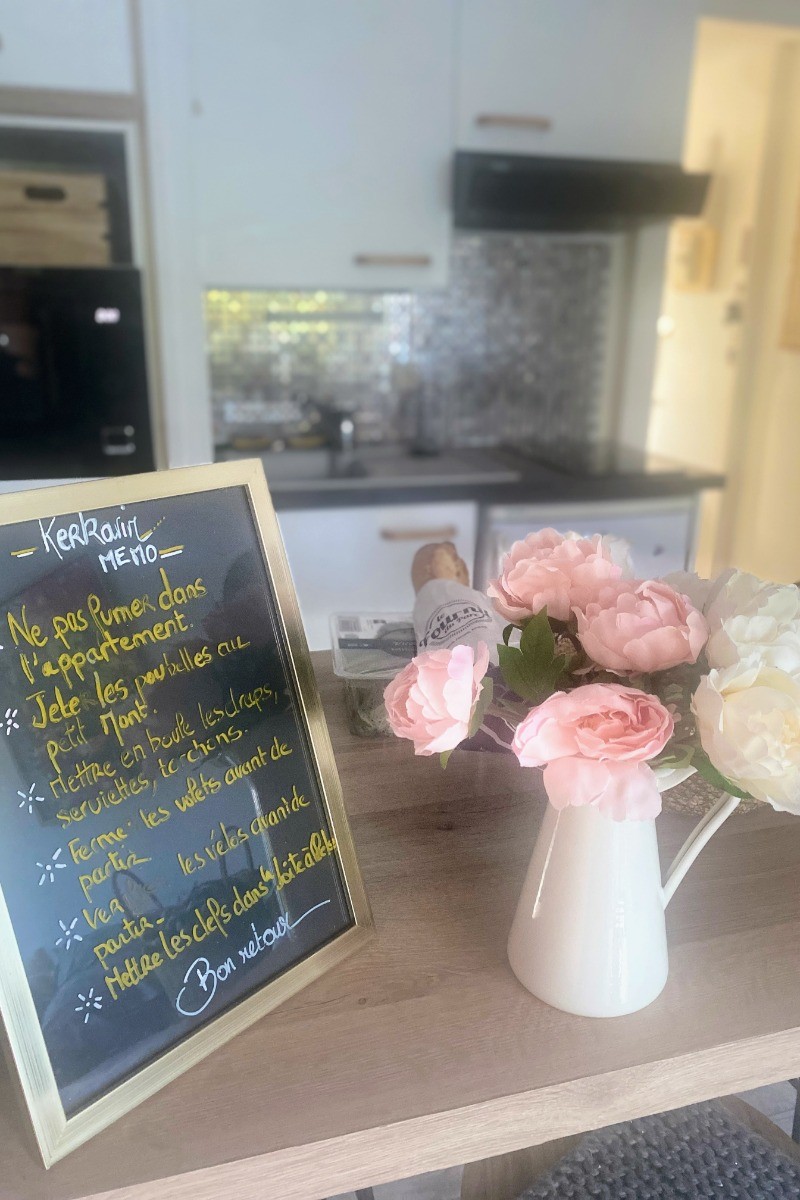 Kerkarin
MEMO
Ne pas fumer dans
l'appartement.
Jete les poubelles au
petit Mont.
Mettre en boule les draps,
serviettes, torchons.
Fermer les volets avant de
partir
Ver les vélos avant de
partir
Mettre les clefs dans la boite à
Bon retour